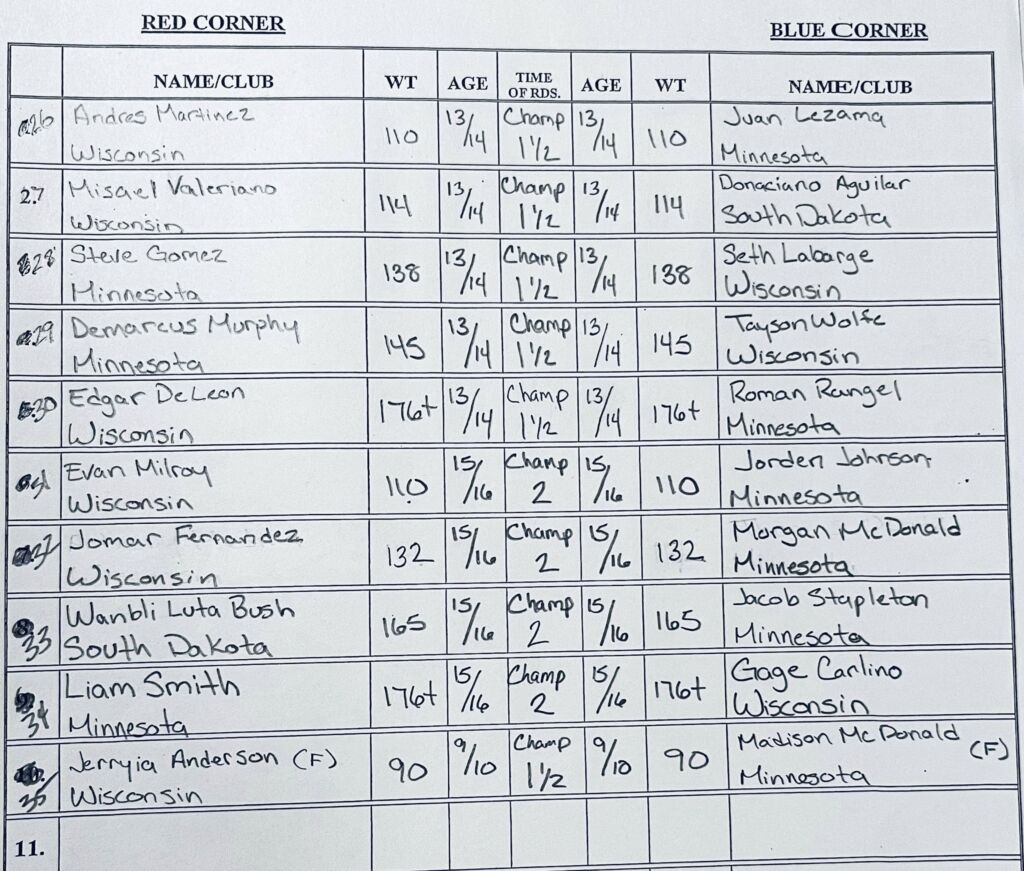 RED CORNER
BLUE CORNER
NAME/CLUB WT AGE TIME OF RDS. AGE WT NAME/CLUB
26 Andres Martinez 110 13/14 Champ 13/14 110 Juan Lezama
Wisconsin 1 1/2 Minnesota
27 Misael Valeriano 114 13/14 Champ 13/14 114 Donaciano Aguilar
Wisconsin 1 1/2 South Dakota
28 Steve Gomez 138 13/14 Champ 13/14 138 Seth Labarge
Minnesota 1 1/2 Wisconsin
29 Demarcus Murphy 145 13/14 Champ 13/14 145 Tayson Wolfe
Minnesota 1 1/2 Wisconsin
30 Edgar DeLeon 176+ 13/14 Champ 13/14 176+ Roman Rangel
Wisconsin 1 1/2 Minnesota
Evan Milroy 110 15/16 Champ 15/16 110 Jorden Johnson
Wisconsin 2 Minnesota
Jomar Fernandez 132 15/16 Champ 15/16 132 Morgan McDonald
Wisconsin 2 Minnesota
33 Wanbli Luta Bush 165 15/16 Champ 15/16 165 Jacob Stapleton
South Dakota 2 Minnesota
34 Liam Smith 176+ 15/16 Champ 15/16 176+ Gage Carlino
Minnesota 2 Wisconsin
35 Jerryia Anderson (F) 90 9/10 Champ 9/10 90 Madison McDonald (F)
Wisconsin 1 1/2 Minnesota
11.